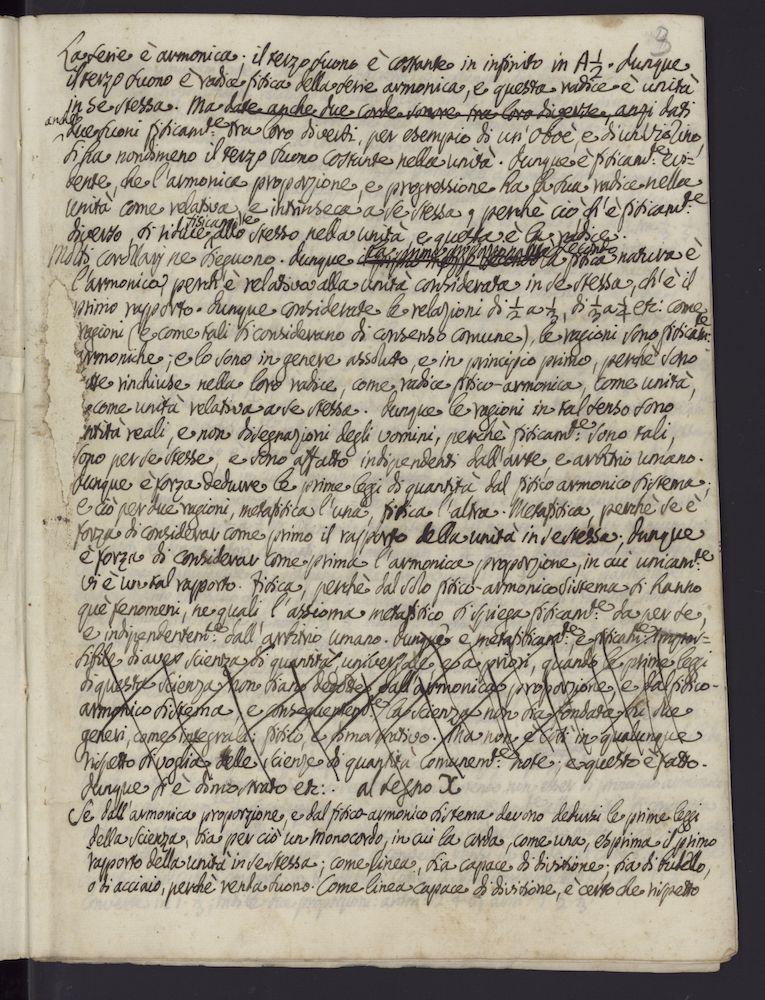 3
La serie è armonica; il terzo suono è costante in infinito in A 1/2. Dunque
il terzo suono è radice fisica della serie armonica, e questa radice è unità
in se stessa. Ma date anche due corde sonore tra loro diverse, anzi dati
anche
due suoni fisicam.te tra loro diversi, per esempio di un'oboè, e di un Violino,
si ha nondimeno il terzo suono costante nella unità. Dunque è fisicam.te evi-
dente, che l'armonica proporzione, e progressione ha la sua radice nella
unità come relativa, e intrinseca a se stessa, perchè ciò ch'è fisicam.te
fisicam.te
diverso si riduce allo stesso nella unità e questa è la radice.
Molti corollarj ne sieguono. Dunque la fisica natura è
l'armonica, perch'è relativa alla unità considerata in se stessa, ch'è il
primo rapporto. Dunque considerate le relazioni di 1/2 a 1/3, di 1/3 a 1/4 etc: come
ragioni (e come tali si considerano di consenso comune), le ragioni sono fisicam.te
armoniche; e lo sono in genere assoluto, e in principio primo, perchè sono
tutte rinchiuse nella loro radice, come radice fisico-armonica, come unità,
e come unità relativa a se stessa. Dunque le ragioni in tal senso sono
entità reali, e non disegnazioni degli uomini, perchè fisicam.te sono tali,
sono per se stesse, e sono affatto indipendenti dall'arte, e arbitrio umano.
Dunque è forza dedurre le prime leggi di quantità dal fisico armonico sistema;
e ciò per due ragioni, metafisica l'una, fisica l'altra. Metafisica, perchè se è
forza di considerar come primo il rapporto della unità in se stessa, dunque
è forza di considerar come prima l'armonica proporzione, in cui unicam.te
vi è un tal rapporto. Fisica, perchè dal solo fisico-armonico sistema si hanno
que' fenomeni, ne' quali l'assioma metafisico si spiega fisicam.te da per se,
e indipendentem.te dall'arbitrio umano. Dunque è metafisicam.te, e fisicam.te impos-
sibile di aver scienza di quantità universale, e a priori, quando le prime leggi
di questa scienza non siano dedotte dall'armonica proporzione, e dal fisico-
armonico sistema, e conseguentem.te la scienza non sia fondata su due
generi, come integrali: fisico, e dimostrativo. Ma non è così in qualunque
rispetto si voglia delle scienze di quantità comunem.te note; e questo è fatto.
Dunque si è dimostrato etc:. al segno X
Se dall'armonica proporzione, e dal fisico-armonico sistema devono dedursi le prime leggi
della scienza, sia per ciò un Monocordo, in cui la corda, come una, esprima il primo
rapporto della unità in se stessa; come linea, sia capace di divisione; sia di budello,
o di acciaio, perchè renda suono. Come linea capace di divisione, è certo che rispetto